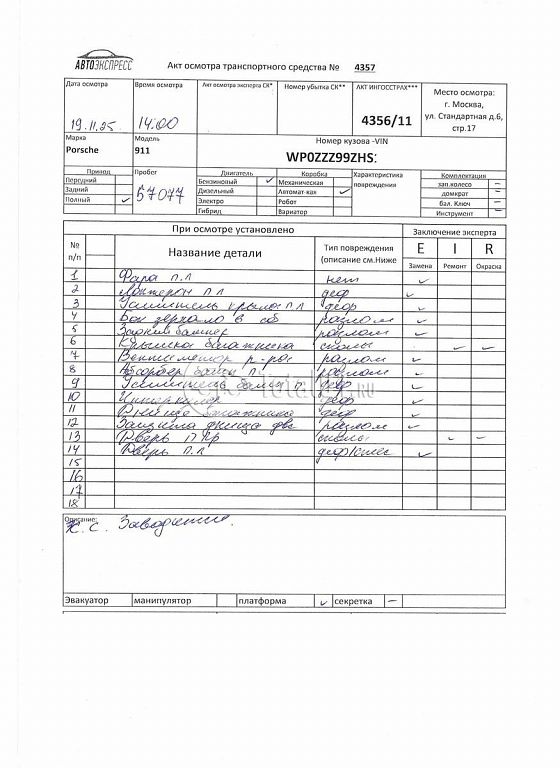 АВТОЭКСПРЕСС
Акт осмотра транспортного средства № 4357
Дата осмотра Время осмотра Акт осмотра эксперта СК* Номер убытка СК** АКТ ИНГОССТРАХ*** Место осмотра:
г. Москва,
ул. Стандартная д.6,
стр.17
19.11.25 14:00 4356/11
Марка Модель Номер кузова -VIN
Porsche 911 WP0ZZZ99ZHS
Привод Пробег Двигатель Коробка Характеристика повреждения Комплектация
Передний Бензиновый ✓ Механическая зап.колесо –
Задний Дизельный Автомат-ная ✓ домкрат –
Полный ✓ 57077 Электро Робот бал. Ключ –
Гибрид Вариатор Инструмент –
При осмотре установлено Заключение эксперта
№ п/п Название детали Тип повреждения (описание см.Ниже E I R
Замена Ремонт Окраска
1 Фара п.л нет ✓
2 Лонжерон п л деф ✓
3 Усилитель крыла п л деф ✓
4 Бок зеркало в сб разлом ✓
5 Задний бампер разлом ✓
6 Крышка багажника сколы ✓ ✓
7 Вентилятор р-ра разлом ✓
8 Абсорбер п. разлом ✓
9 Усилитель п деф ✓
10 Интеркулер деф ✓
11 багажника деф ✓
12 Защита днища двс разлом ✓
13 Дверь П пр сколы ✓ ✓
14 Дверь п.л ✓
15
16
17
18
Описание:
Х.С. Заводится.
Эвакуатор манипулятор платформа ✓ секретка –